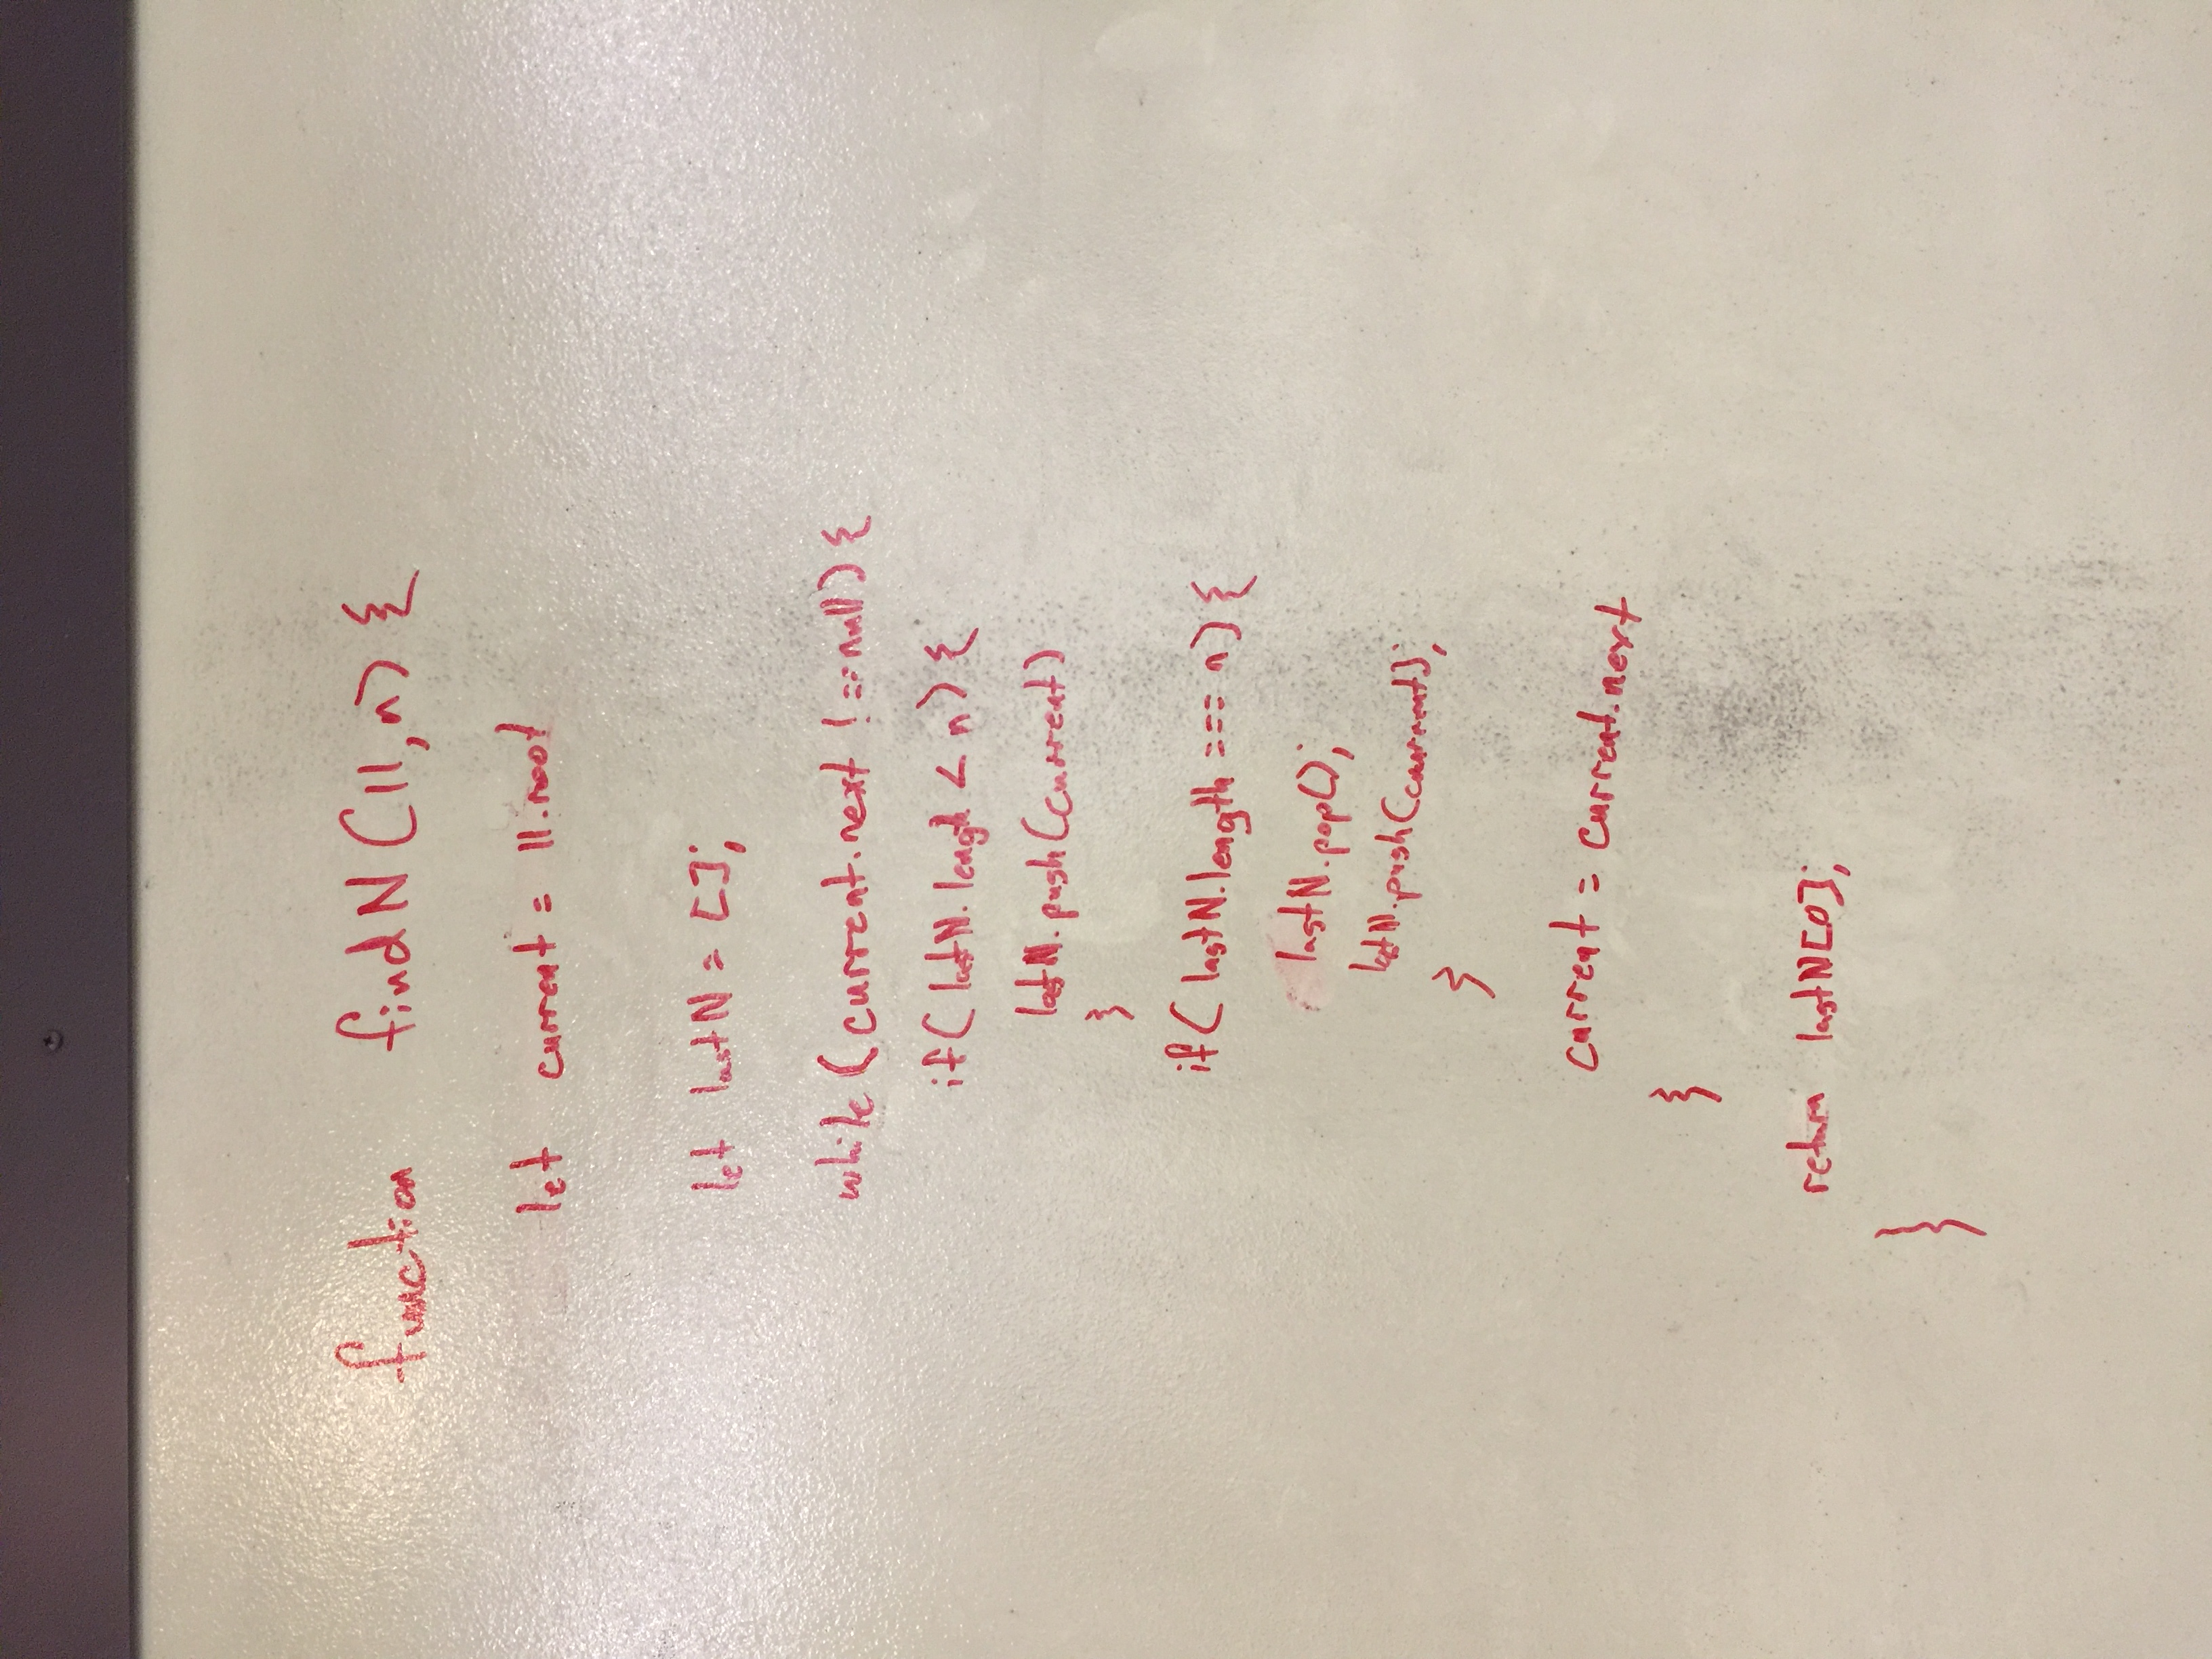 function findN(ll,n) {
let current = ll.root
let lastN = [];
while (current.next !== null) {
if( lastN.lengh < n) {
lastN.push(current)
}
if( lastN.length === n) {
lastN.pop();
lastN.push(current);
}
current = current.next
}
return lastN[0];
}